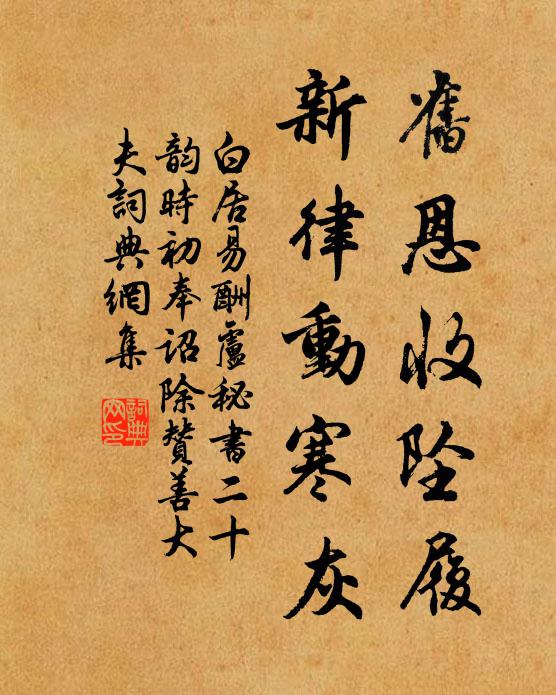 舊恩收坠履
新律動寒灰
白居易酬盧秘書二十
韵時初奉詔除贊善大
夫詞典網集
詞典
网印